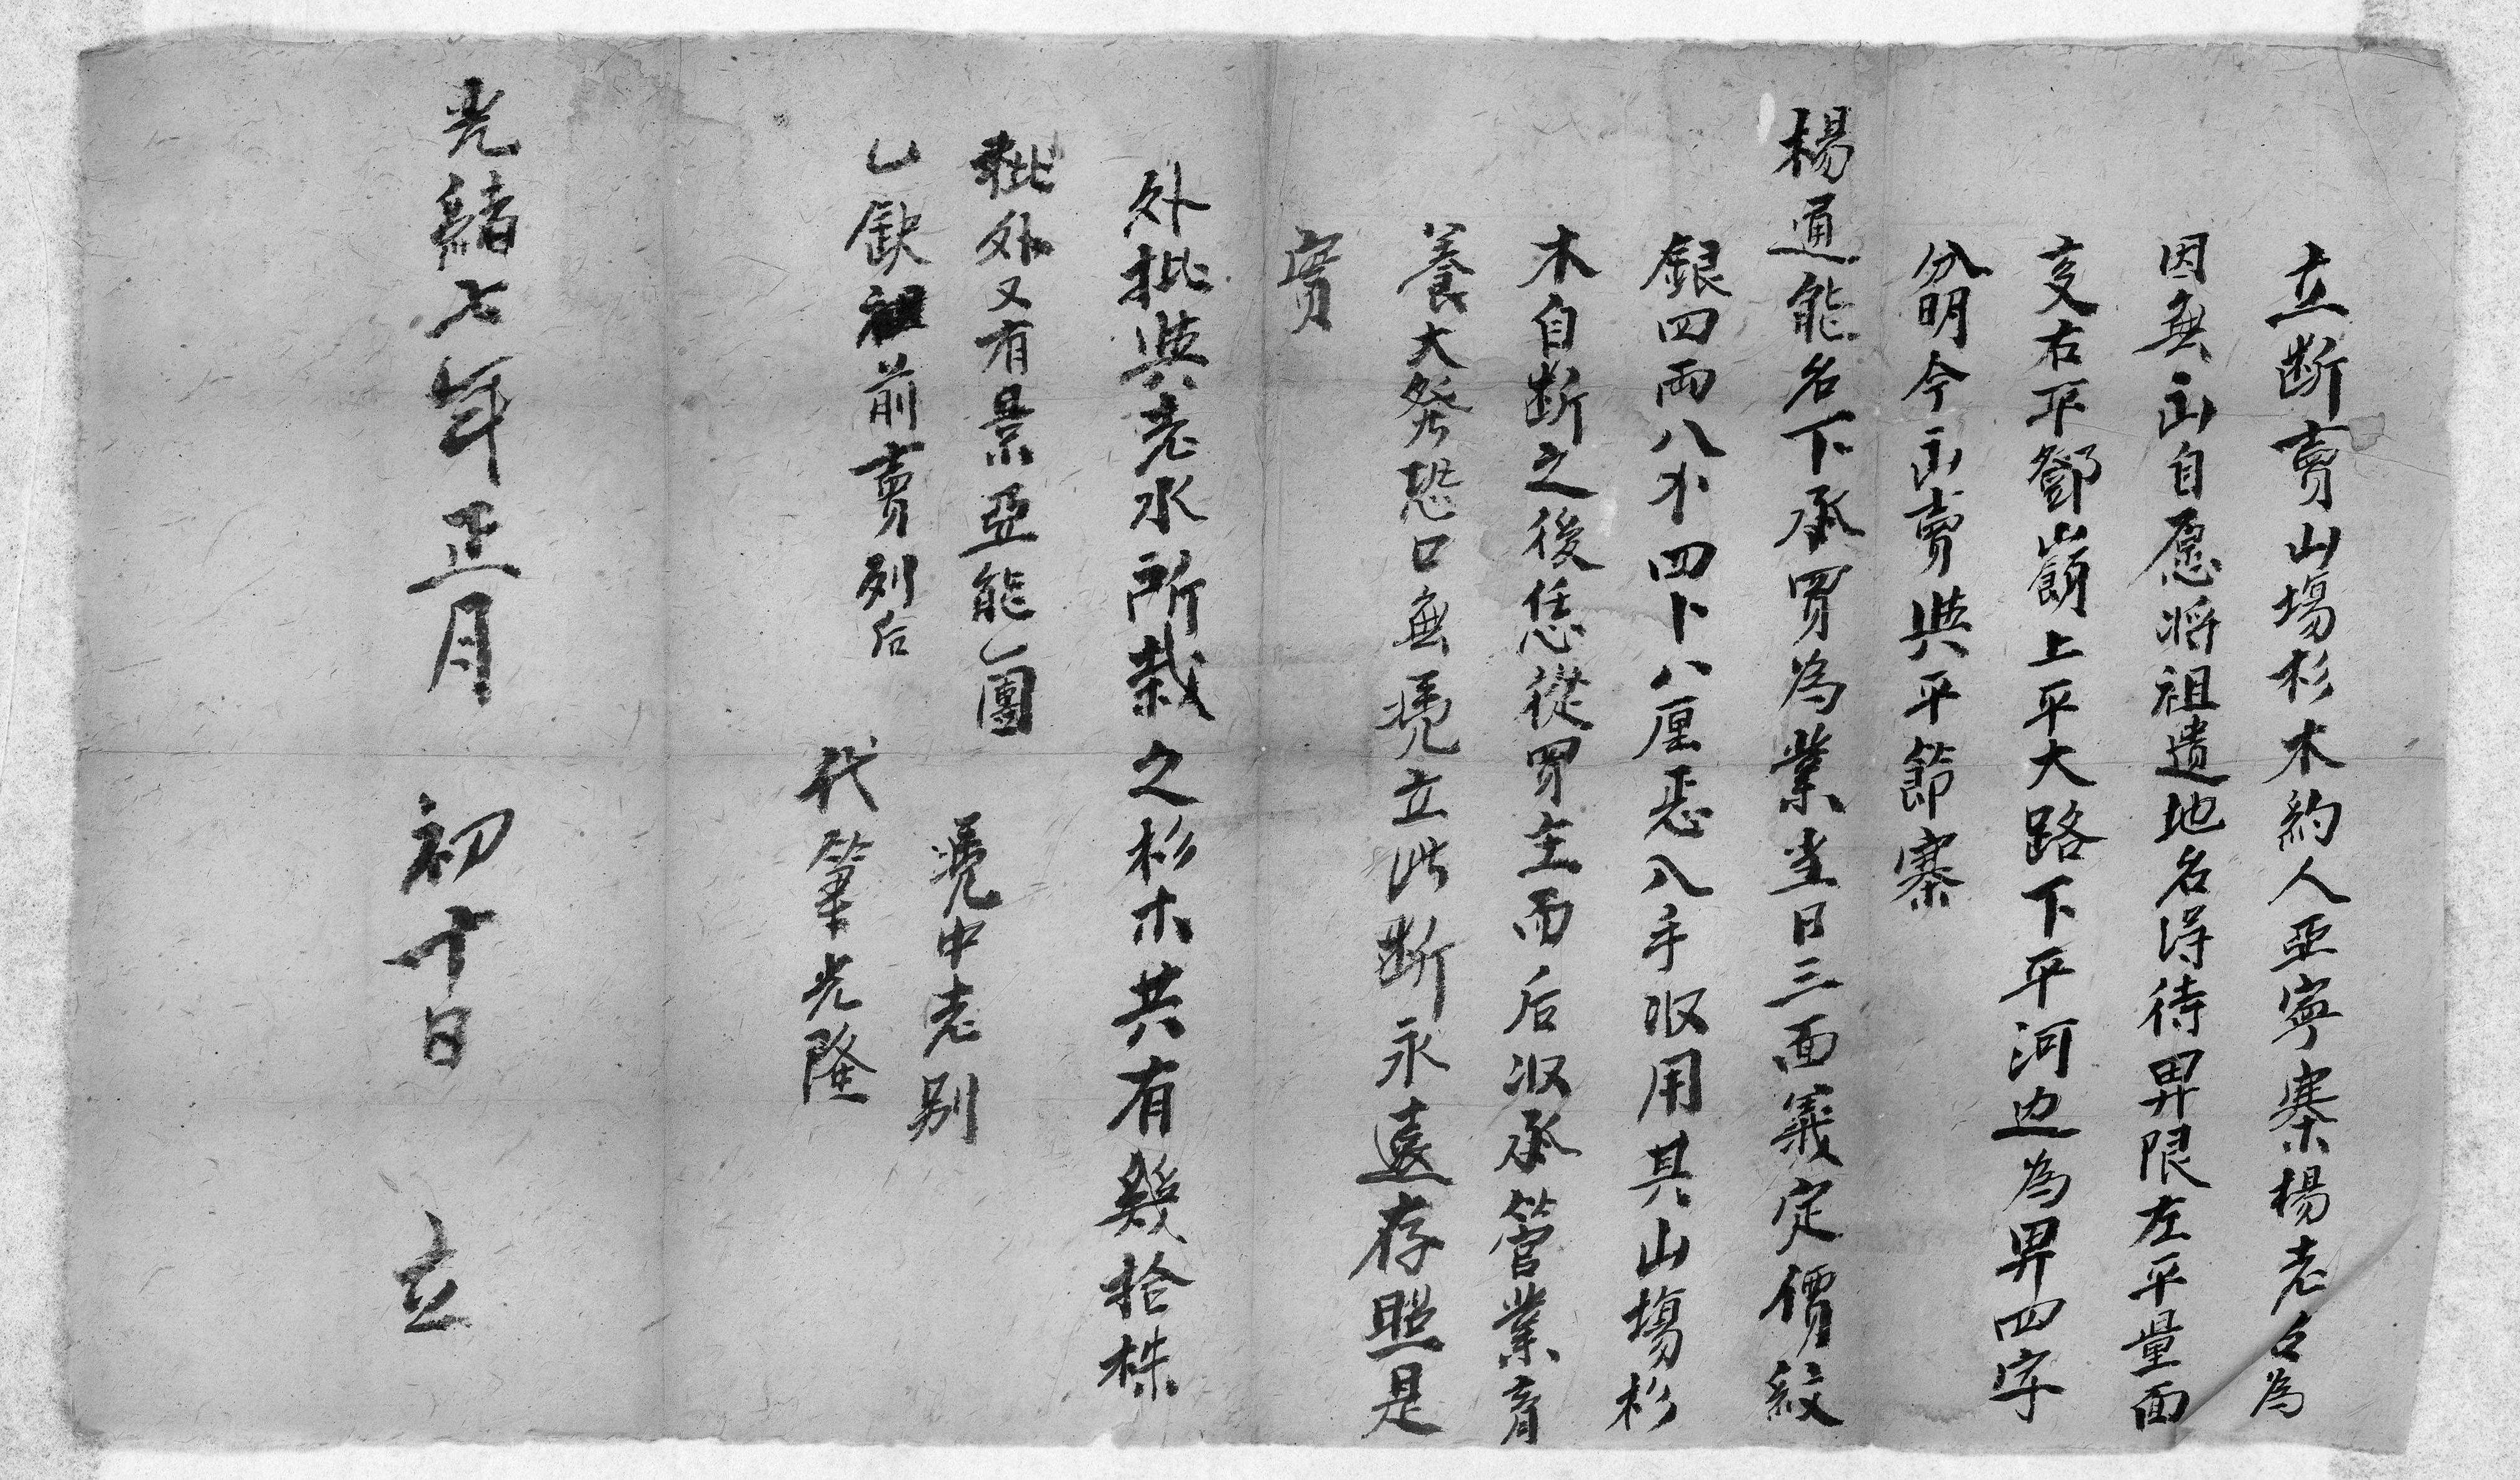 立断賣山塲杉木約人亞寧寨楊老台為
因無山自愿將祖遺地名得待畀限左平量面
亥右平鄧嶺上平大路下平河边為畀四字
分明今山賣與平節寨
楊通能名下承買為業当日三面義定價紋
銀四両八卜四卜八厘悉入手収用其山塲杉
木自断之後恁從買主而后収承管業育
養大發恐口無凴立此断永遠存照是
實
外批與老水所栽之杉木共有幾拾株
批外又有景亞能一團
乚欽祖前賣列后
凴中老别
代筆光隆
光緒七年正月初十日立